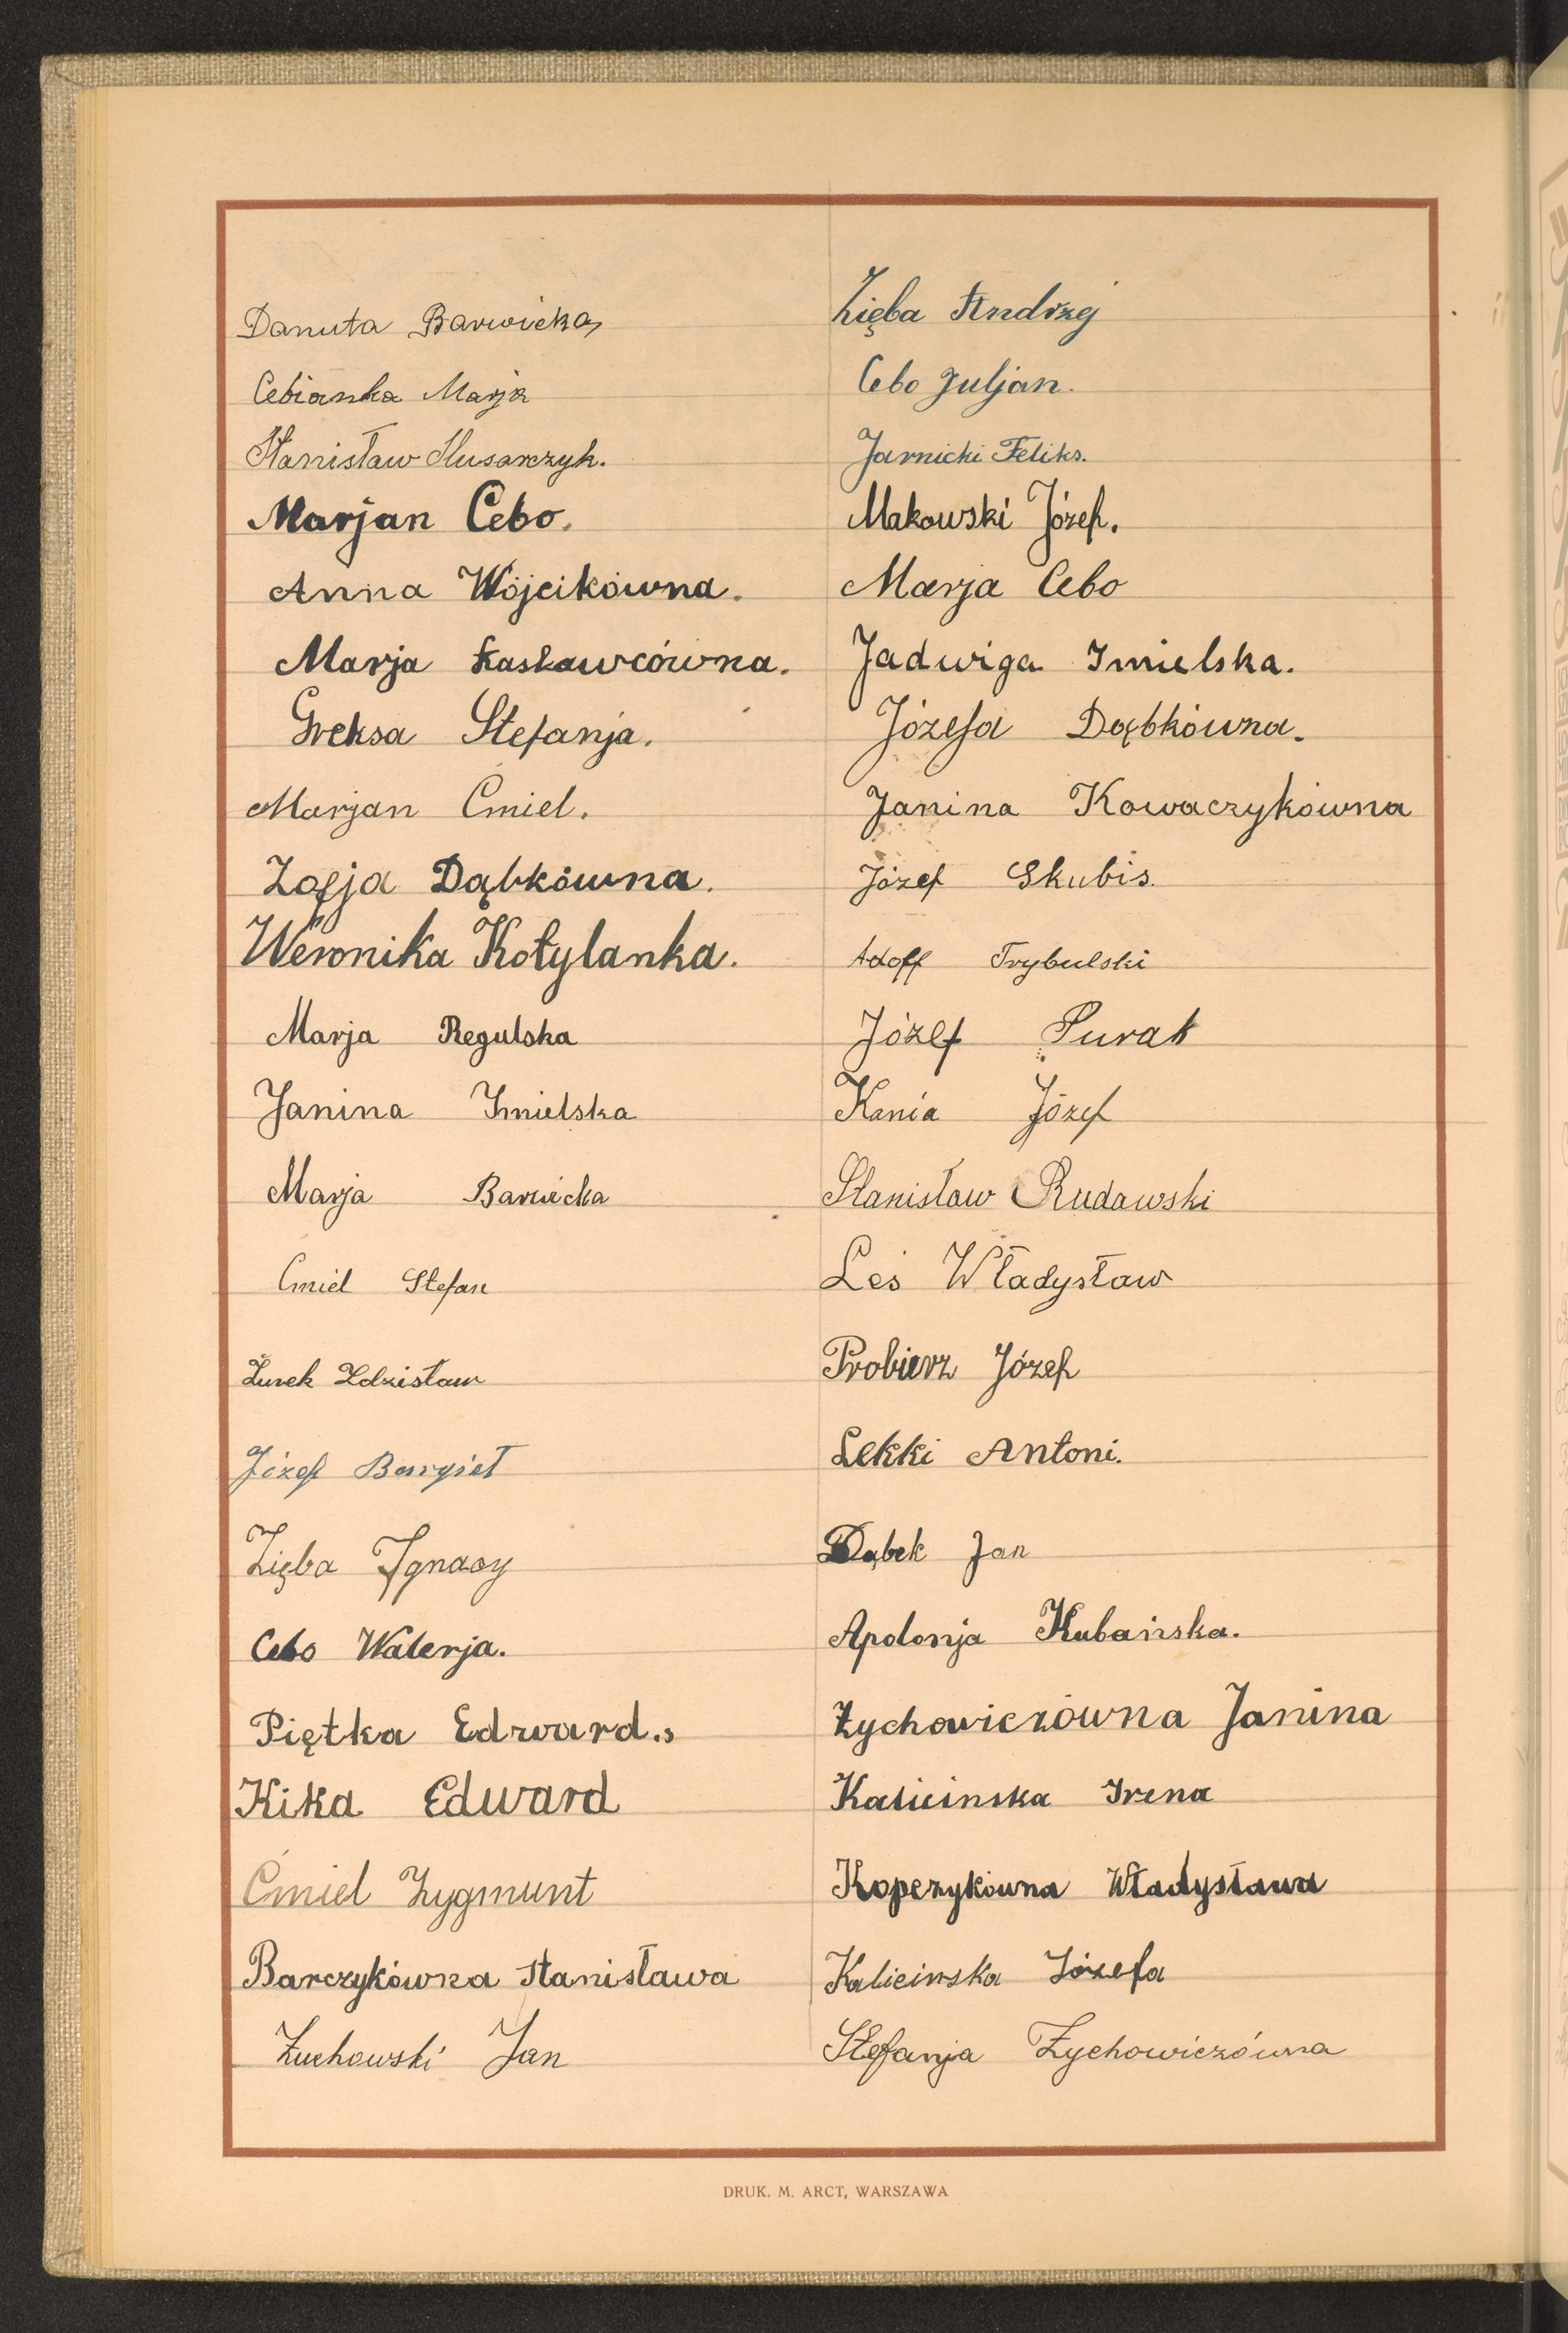 Danuta Barwicka
Cebianka Marja
Stanisław Slusarczyk.
Marjan Cebo.
Anna Wójcikówna.
Marja Kaskawcówna.
Greksa Stefanja.
Marjan Cmiel.
Zofja Dąbkówna.
Weronika Kotylanka.
Marja Regulska
Janina Imielska
Marja Barwicka
Cmiel Stefan
Żurek Zdzisław
Józef Bargieł
Zięba Ignacy
Cebo Walerja.
Piętka Edward.
Kika Edward
Ćmiel Zygmunt
Barczykówna Stanisława
Żuchowski Jan
Zięba Andrzej
Cebo Juljan.
Jarnicki Feliks.
Makowski Józef.
Marja Cebo
Jadwiga Imielska.
Józefa Dąbkówna.
Janina Kowaczykówna
Józef Skubis.
Adolf Trybulski
Józef Purak
Kania Józef
Stanisław Rudawski
Leś Władysław
Probierz Józef
Lekki Antoni.
Dąbek Jan
Apolonja Kubańska.
Zychowiczówna Janina
Kalicinska Irena
Kopczykówna Władysława
Kalicinska Józefa
Stefanja Zychowiczówna
DRUK. M. ARCT, WARSZAWA